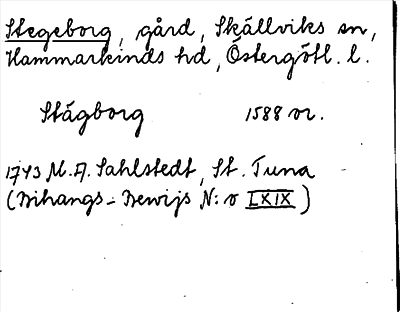 Stegeborg, gård, Skällviks sn,
Hammarkinds hd, Östergötl. l.
Stägborg 1588 or.
1743 M.A. Sahlstedt, St. Tuna
(Bihangs-Bewijs N:o LXIX)